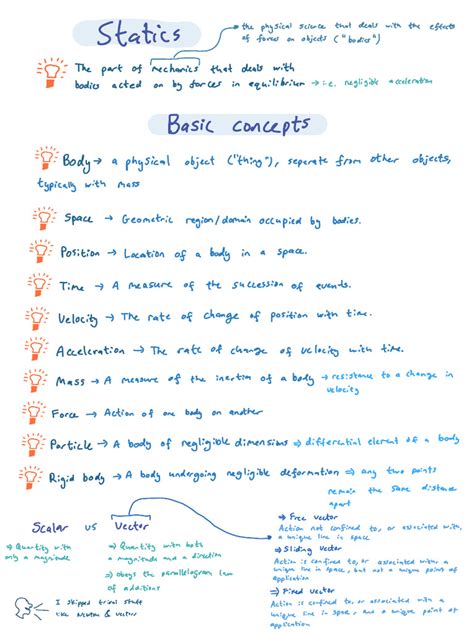 Statics
the physical science that deals with the effects
of forces on objects ("bodies")
The part of mechanics that deals with
bodies acted on by forces in equilibrium → i.e. negligible acceleration
Basic concepts
Body → a physical object ("thing"), separate from other objects,
typically with mass
Space → Geometric region/domain occupied by bodies.
Position → Location of a body in a space.
Time → A measure of the succession of events.
Velocity → The rate of change of position with time.
Acceleration → The rate of change of velocity with time.
Mass → A measure of the inertia of a body → resistance to a change in
velocity
Force → Action of one body on another
Particle → A body of negligible dimensions ⇒ differential element of a body
Rigid body → A body undergoing negligible deformation ⇒ any two points
remain the same distance
apart
Scalar vs Vector
⇒ Quantity with
only a magnitude
⇒ Quantity with both
a magnitude and a direction
⇒ obeys the parallelogram law
of additions
⇒ Free vector
Action not confined to, or associated with,
a unique line in space
⇒ Sliding vector
Action is confined to, or associated with a
unique line in space, but not a unique point of
application
⇒ Fixed vector
Action is confined to, or associated with a
unique line in space, and a unique point of
application
I skipped trivial stuff
like Newton & vector